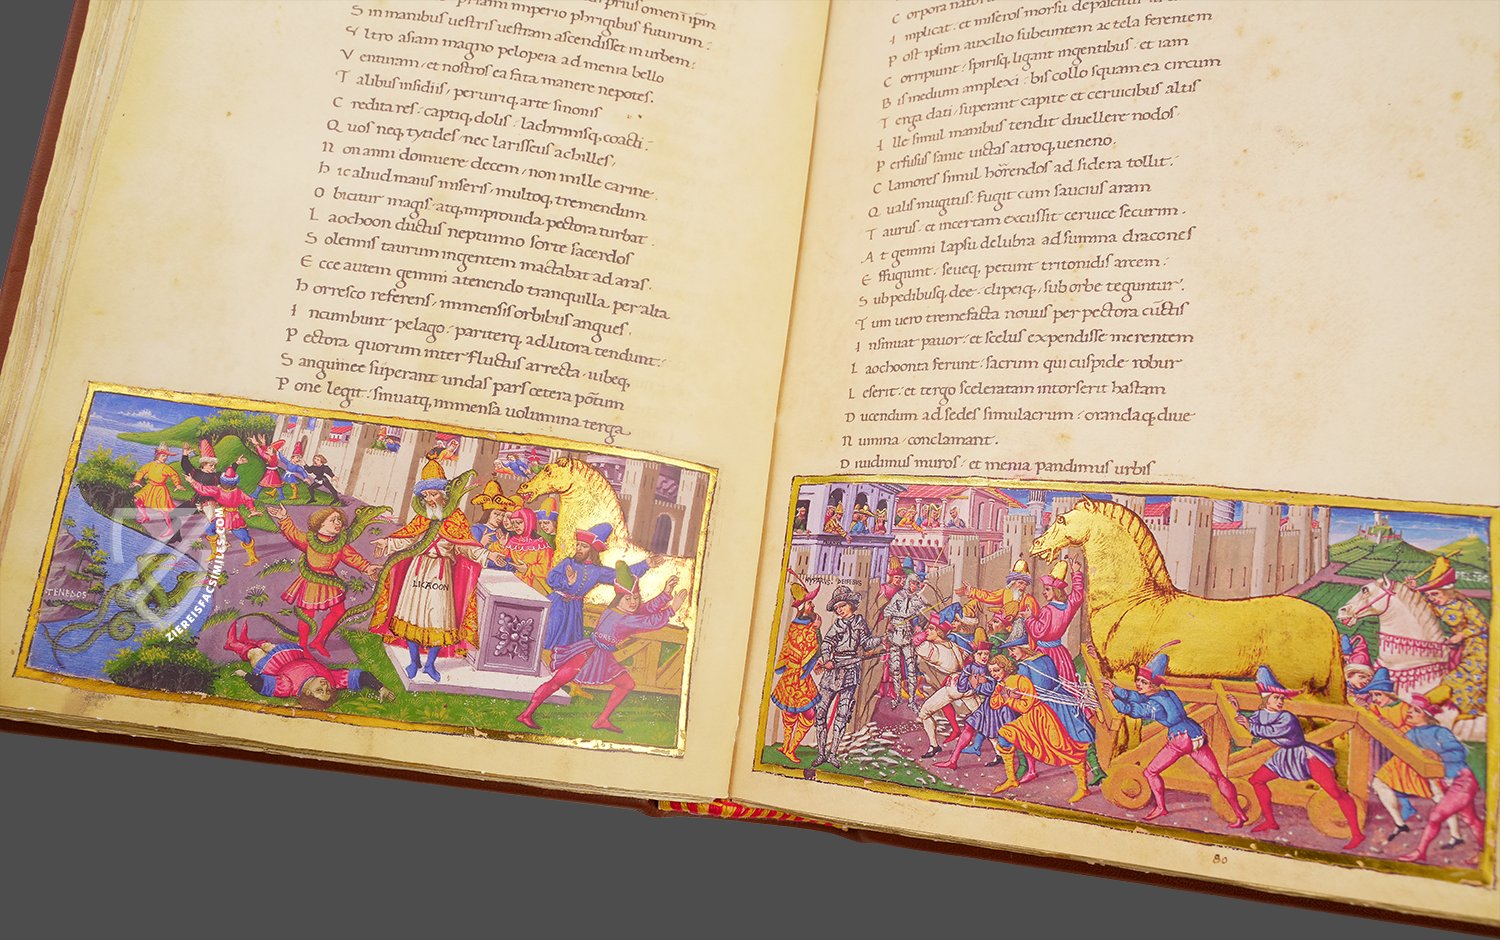 priami imperio phrigibus futurum:
S in manibus uestris uestram ascendisset in urbem:
V ltro asiam magno pelopea ad menia bello
V enturam, et nostros ea fata manere nepotes.
T alibus insidiis, periuriq, arte sinonis
C redita res: captiq, dolis: lachrimisq, coacti:
Q uos neq, tytides, nec larisseus achilles,
N on anni domuere decem, non mille carine.
h ic aliud maius miseris, multoq, tremendum
O bicitur magis, atq, improuida pectora turbat.
L aochoon ductus neptunno sorte sacerdos
S olennis taurum ingentem mactabat ad aras.
E cce autem gemini a tenendo tranquilla per alta
h orresco referens, immensis orbibus angues,
I ncumbunt pelago: pariterq, ad litora tendunt:
P ectora quorum inter fluctus arrecta, iubeq,
S anguinee superant undas pars cetera potum
P one legit: sinuatq, immensa uolumina terga
TENEDOS
LICAOON
C orpora
I mplicat: et miseros morsu depascitur
P ost ipsum auxilio subeuntem ac tela ferentem
C orripiunt: spirisq, ligant ingentibus: et iam
B is medium amplexi: bis collo squamea circum
T erga dati, superant capite et ceruicibus altis
I lle simul manibus tendit diuellere nodos,
P erfusus sanie uictas atroq, ueneno,
C lamores simul horrendos ad sidera tollit:
Q ualis mugitus: fugit cum saucius aram
T aurus: et incertam excussit ceruice securim.
A t gemini lapsu delubra ad summa dracones
E ffugiunt: seueq, petunt tritonidis arcem:
S ub pedibusq, dee: clipeiq, sub orbe teguntur.
T um uero tremefacta nouus per pectora cunctis
I nsinuat pauor: et scelus expendisse merentem
L aochoonta ferunt: sacrum qui cuspide robur
L eserit: et tergo sceleratam intorserit hastam
D ucendum ad sedes simulacrum: orandaq, diue
N umina, conclamant.
D iuidimus muros: et menia pandimus urbis
80
ZIEREISFACSIMILES.COM